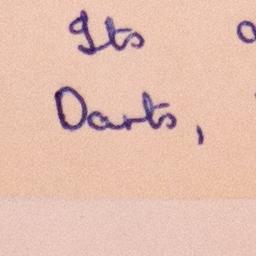 Its
Darts,